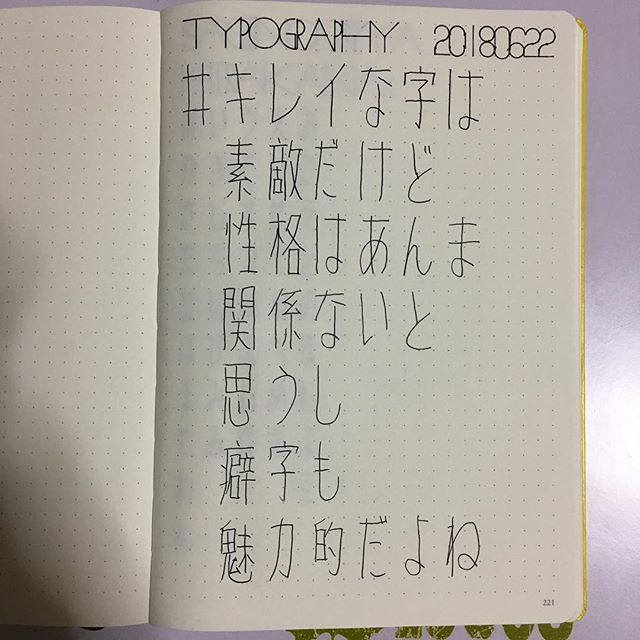 TYPOGRAPHY 20180622
#キレイな字は
素敵だけど
性格はあんま
関係ないと
思うし
癖字も
魅力的だよね
221